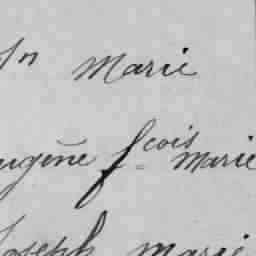 Jn Marie
ugène fcois Marie
Joseph Marie